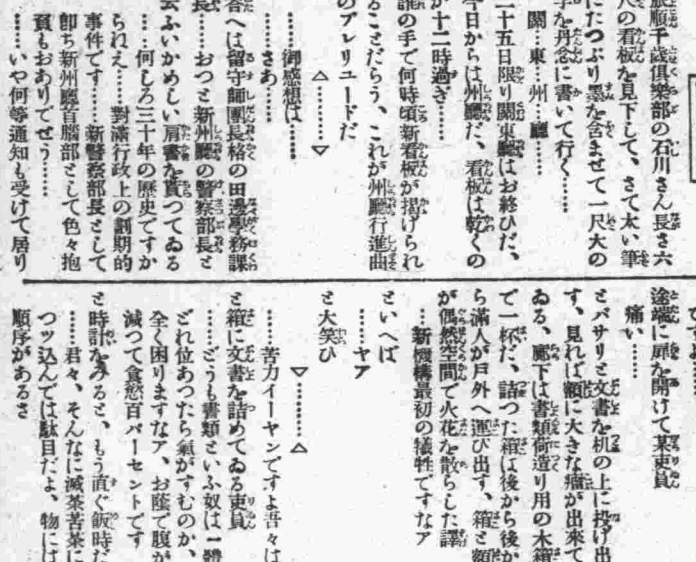 旅順千歳倶樂部の石川さん長さ六
尺の看板を見下して、さて太い筆
にたつぷり墨を含ませて一尺大の
字を丹念に書いて行く……
關…東…州…廳……
二十五日限り關東廳はお終ひだ、
今日からは州廳だ、看板は乾くの
が十二時過ぎ……
誰の手で何時頃新看板が揭げられ
ることだらう、これが州廳行進曲
のプレリユードだ
△………▽
御感想は……
……さあ……
答へは留守師團長格の田邊學務課
長……おつと新州廳の警察部長と
云ふいかめしい肩書を貰つてゐる
……何しろ三十年の歷史ですか
られえ……對滿行政上の劃期的
事件です……新警察部長として
卽ち新州廳首腦部として色々抱
負もおありでせう……
……いや何等通知も受けて居り
途端に扉を開けて某吏員
痛い……
とバサリと文書を机の上に投げ出
す、見れば額に大きな瘤が出來て
ゐる、廊下は書類荷造り用の木箱
で一杯だ、詰つた箱は後から後か
ら滿人が戶外へ運び出す、箱と額
が偶然空間で火花を散らした譯
…新機構最初の犧牲ですなア
……ヤア
といへば
と大笑ひ
▽………△
……苦力イーヤンですよ吾々は
と箱に文書を詰めてゐる吏員
……どうも書類といふ奴は一體
どれ位あつたら氣がすむのか、
全く困りますなア、お蔭で腹が
減つて食慾百パーセントです
と時計をみると、もう直ぐ飯時だ
……君々、そんなに滅茶苦茶に
つツ込んでは駄目だよ、物には
順序があるさ